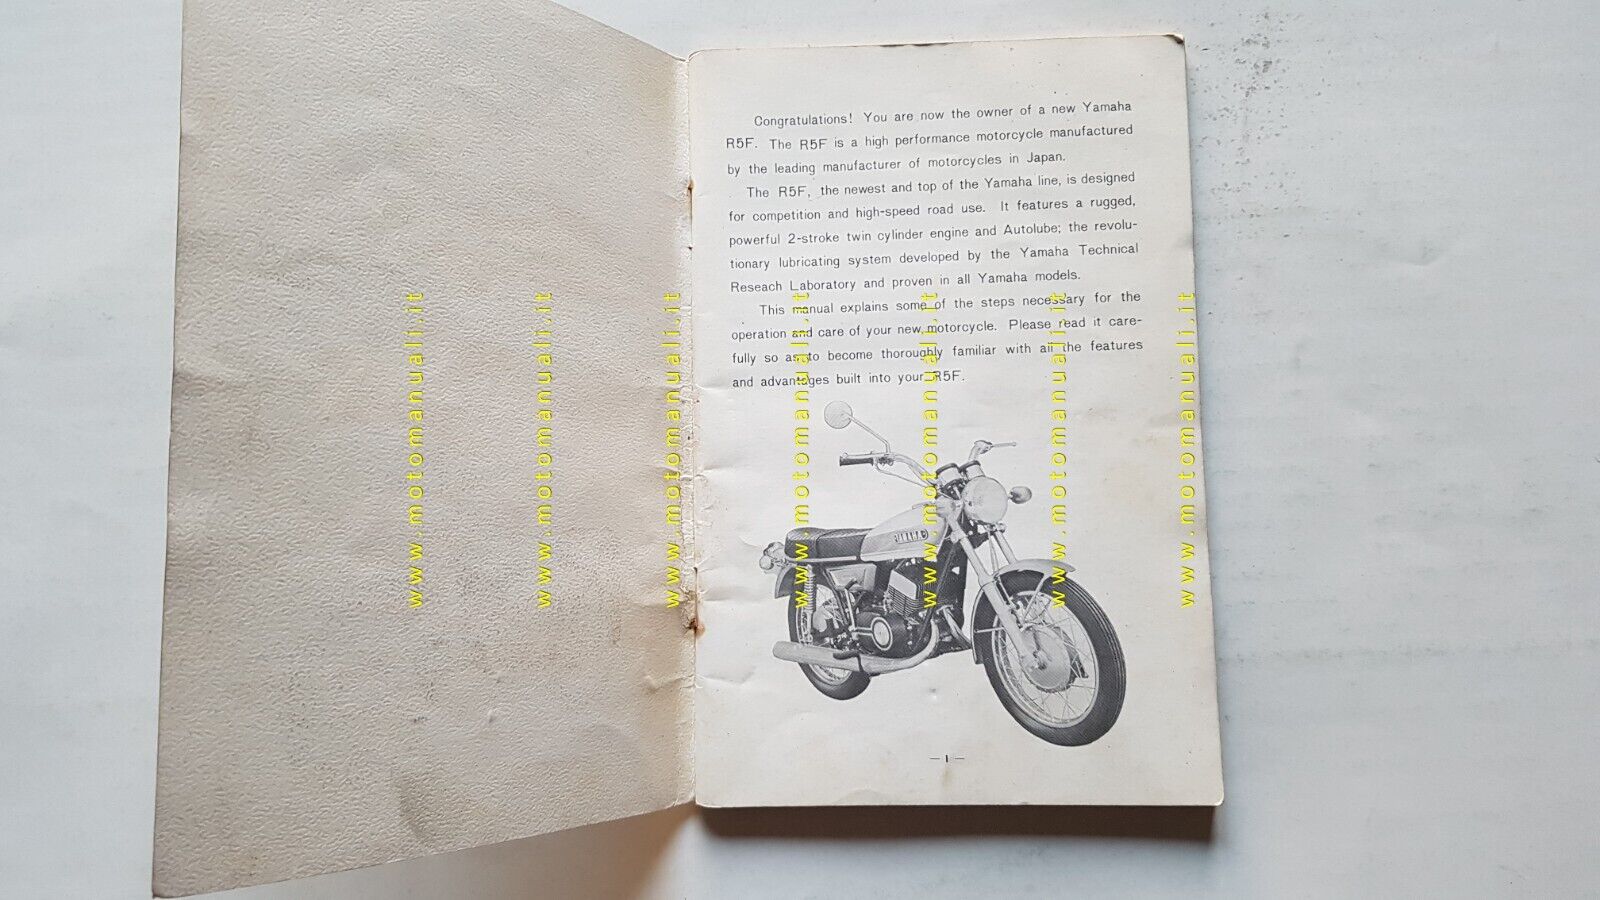 Congratulations! You are now the owner of a new Yamaha
R5F. The R5F is a high performance motorcycle manufactured
by the leading manufacturer of motorcycles in Japan.
The R5F, the newest and top of the Yamaha line, is designed
for competition and high-speed road use. It features a rugged,
powerful 2-stroke twin cylinder engine and Autolube; the revolu-
tionary lubricating system developed by the Yamaha Technical
Reseach Laboratory and proven in all Yamaha models.
This manual explains some of the steps necessary for the
operation and care of your new motorcycle. Please read it care-
fully so as to become thoroughly familiar with all the features
and advantages built into your R5F.
YAMAHA
— 1 —
www.motomanuali.it
www.motomanuali.it
www.motomanuali.it
www.motomanuali.it
www.motomanuali.it
www.motomanuali.it
www.motomanuali.it